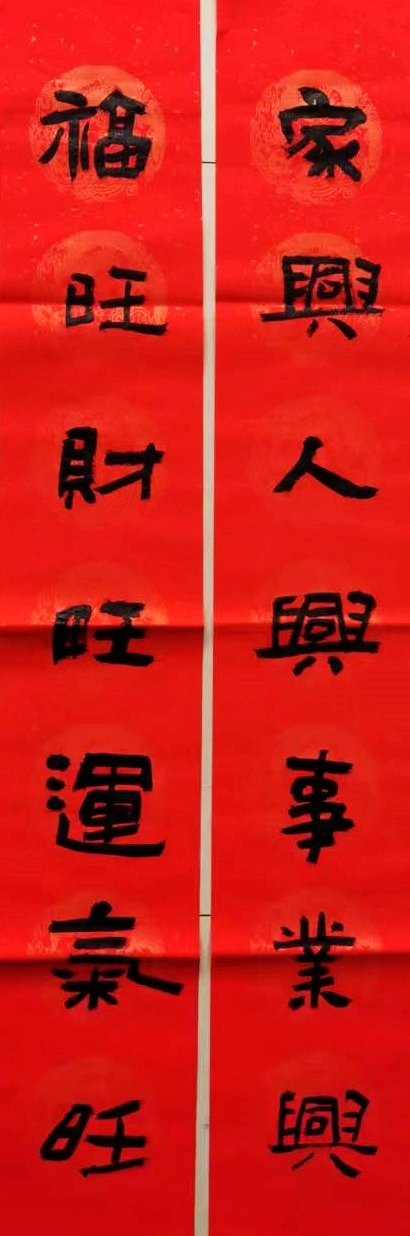 家興人興事業興
福旺財旺運氣旺